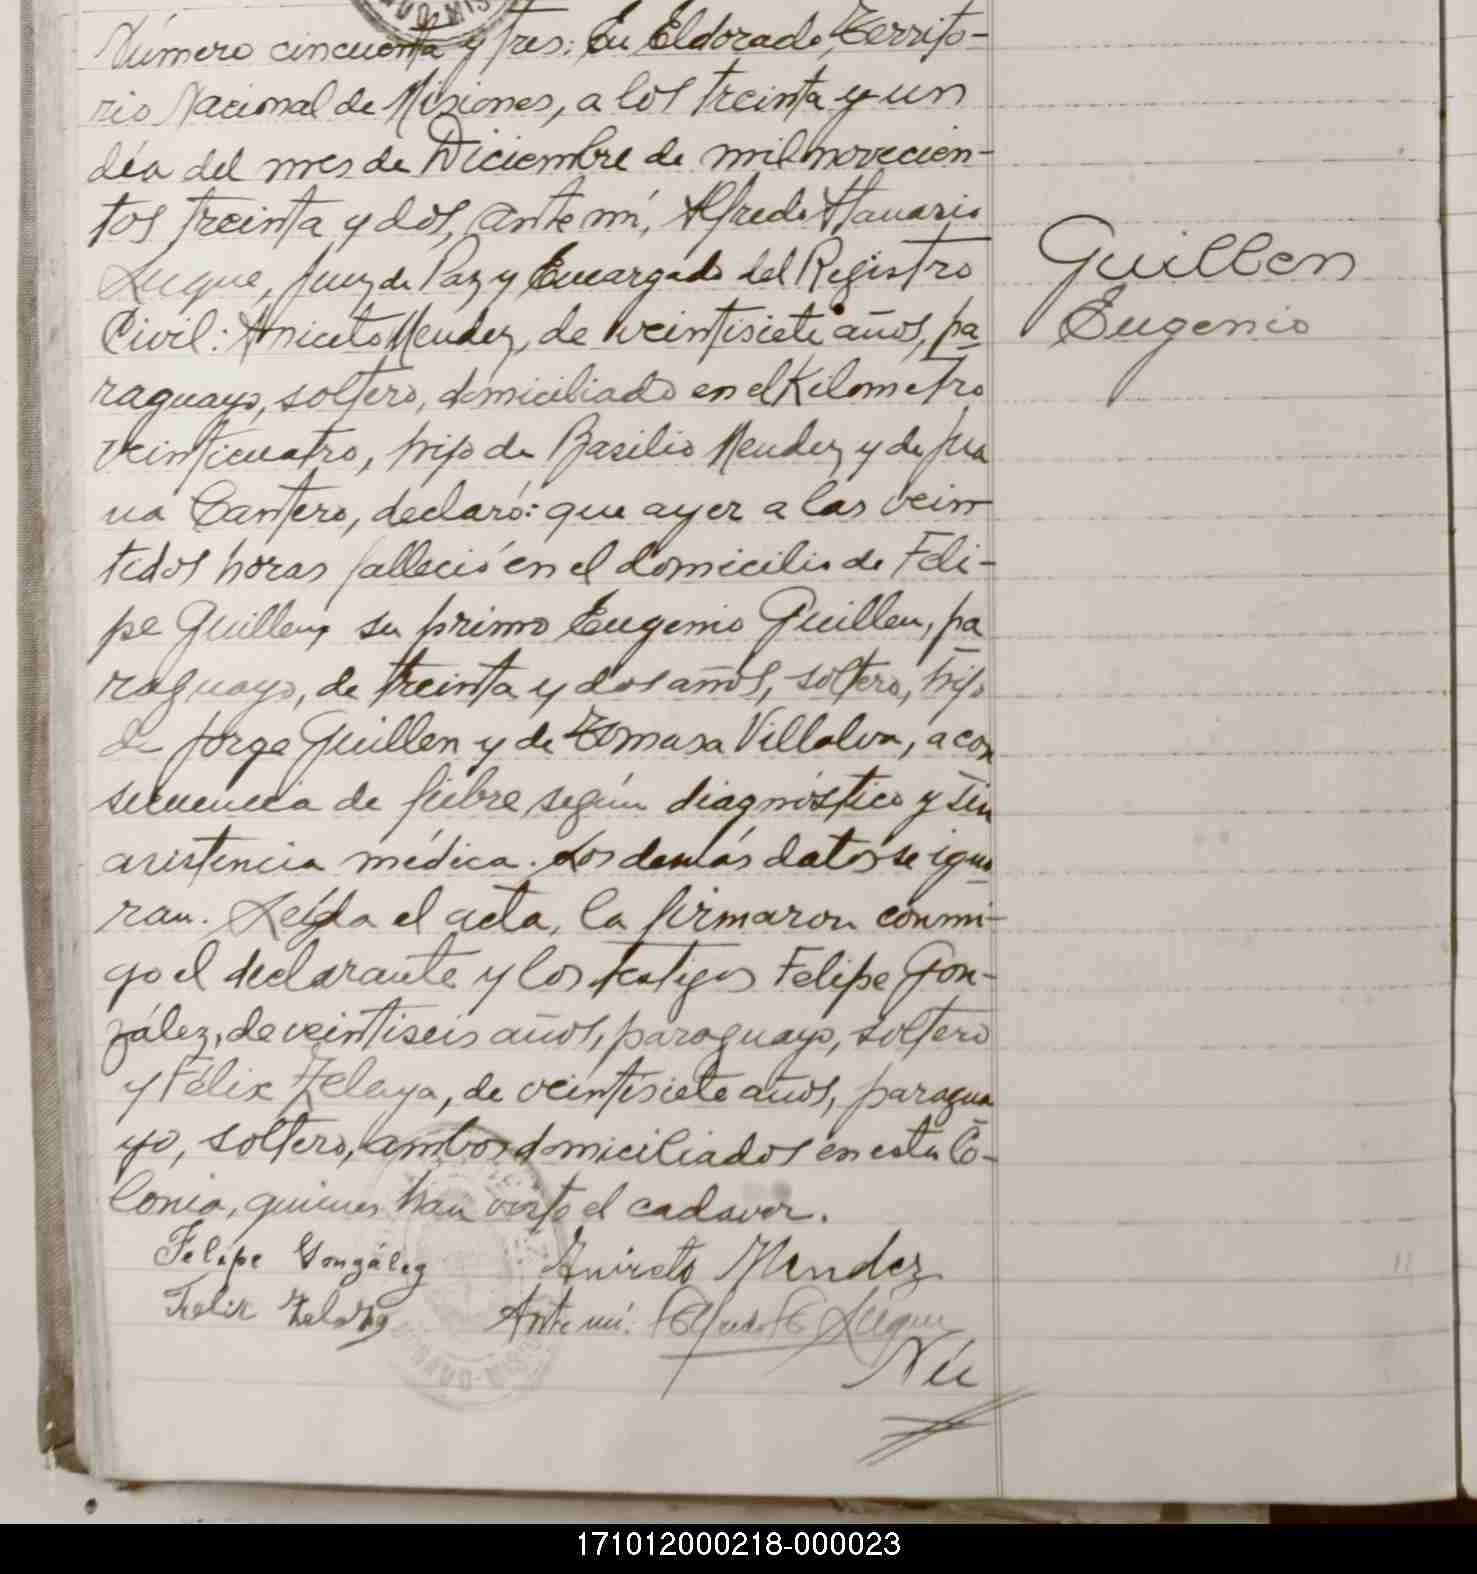 Número cincuenta y tres: En Eldorado, Territo-
rio Nacional de Misiones, a los treinta y un
día del mes de Diciembre de mil novecien-
tos treinta y dos, ante mí, Alfredo
Luque, Juez de Paz y Encargado del Registro
Civil: Aniceto Mendez, de veintisiete años, pa
raguayo, soltero, domiciliado en el Kilometro
veinticuatro, hijo de Basilio Mendez y de Jua
na Cantero, declaró: que ayer a las vein
tidos horas falleció en el domicilio de Feli-
pe Guillen, su primo Eugenio Guillen, pa
raguayo, de treinta y dos años, soltero, hijo
de Jorge Guillen y de Tomasa Villalva, a con
secuencia de fiebre según diagnóstico y sin
asistencia médica. Los demás datos se igno
ran. Leída el acta, la firmaron conmi-
go el declarante y los testigos Felipe Gon-
zález, de veintiseis años, paraguayo, soltero
y Félix Zelaya, de veintisiete años, paragua
yo, soltero, ambos domiciliados en esta Co-
lonia, quienes han visto el cadaver.
Felipe González
Aniceto Mendez
Felix Zelaya
Ante mí: Alfredo A Luque
Guillen
Eugenio
171012000218-000023